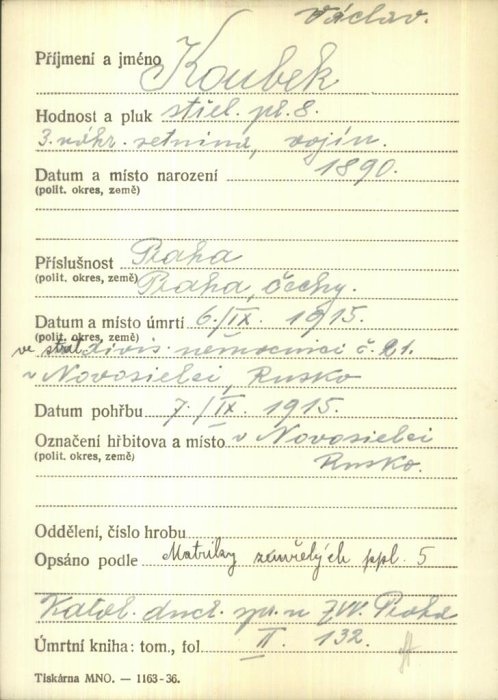 Václav.
Příjmení a jméno Koubek
Hodnost a pluk střel. pl. 8.
3. náhr. setnina, vojín.
Datum a místo narození 1890.
(polit. okres, země)
Příslušnost Praha
(polit. okres, země) Praha, Čechy.
Datum a místo úmrtí 6./IX. 1915.
(polit. okres, země)
ve divis. nemocnici č. 21.
v Novosielci, Rusko
Datum pohřbu 7./IX. 1915.
Označení hřbitova a místo v Novosielci
(polit. okres, země) Rusko.
Oddělení, číslo hrobu
Opsáno podle Matriky zemřelých ppl. 5
Katol. duch. spr. u ZVV. Praha
Úmrtní kniha: tom., fol II. 132.
Tiskárna MNO. — 1163-36.